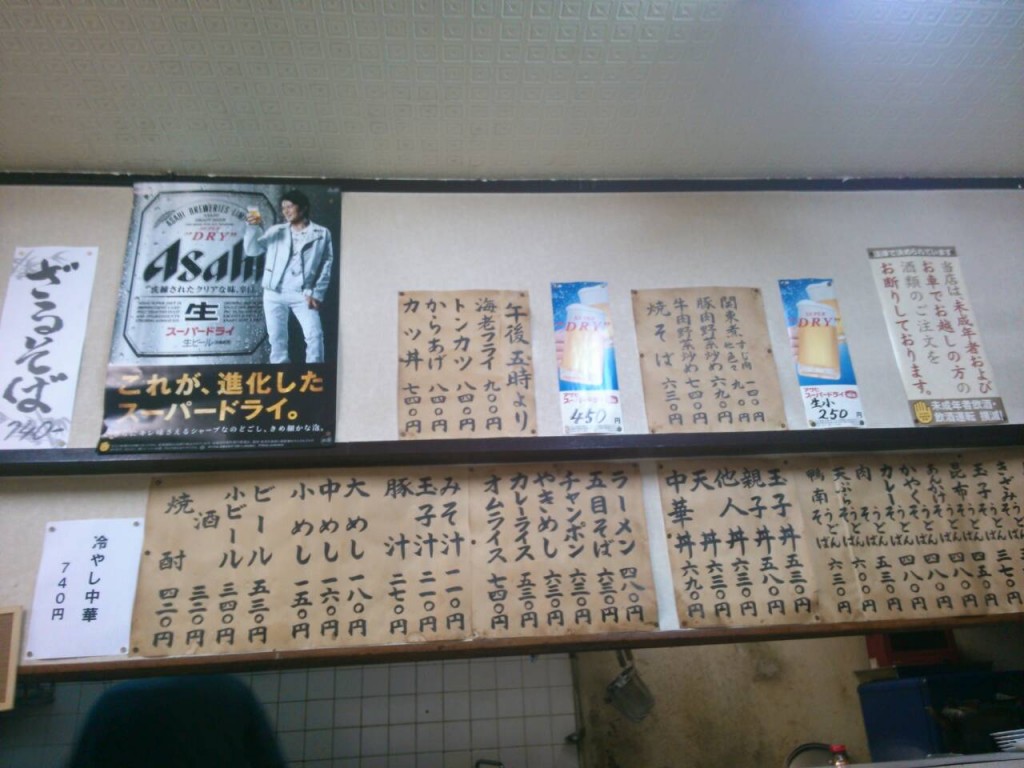 ざるそば
740-
ASAHI BREWERIES LIMITED
SUPER
"DRY"
Asahi
"洗練されたクリアな味、辛口。"
生
スーパードライ
生ビール
これが、進化した
スーパードライ。
午後五時より
海老フライ 九〇〇円
トンカツ 八四〇円
からあげ 八四〇円
カツ丼 七四〇円
SUPER
DRY
アサヒ
スーパードライ
450円
豚肉野菜炒め 六九〇円
牛肉野菜炒め 七四〇円
焼そば 六三〇円
SUPER
DRY
アサヒ
スーパードライ
生小
250円
当店は、未成年者および
お車でお越しの方の
酒類のご注文を
お断りしております。
未成年者飲酒・
飲酒運転 撲滅!
玉子そば うどん
昆布そば うどん
あんかけそば うどん
かやくそば うどん
カレーそば うどん
肉そば うどん
天ぷらそば うどん
鴨南そば うどん 六三〇円
玉子丼 五三〇円
親子丼 五八〇円
他人丼 六三〇円
天丼 六三〇円
中華丼 六九〇円
ラーメン 四八〇円
五目そば 六三〇円
チャンポン 六三〇円
やきめし 六三〇円
カレーライス 五八〇円
オムライス 七四〇円
みそ汁 一一〇円
玉子汁 二一〇円
豚汁 二七〇円
大めし 一八〇円
中めし 一六〇円
小めし 一五〇円
ビール 五三〇円
小ビール 三四〇円
酒 三二〇円
焼酎 四二〇円
冷やし中華
740円